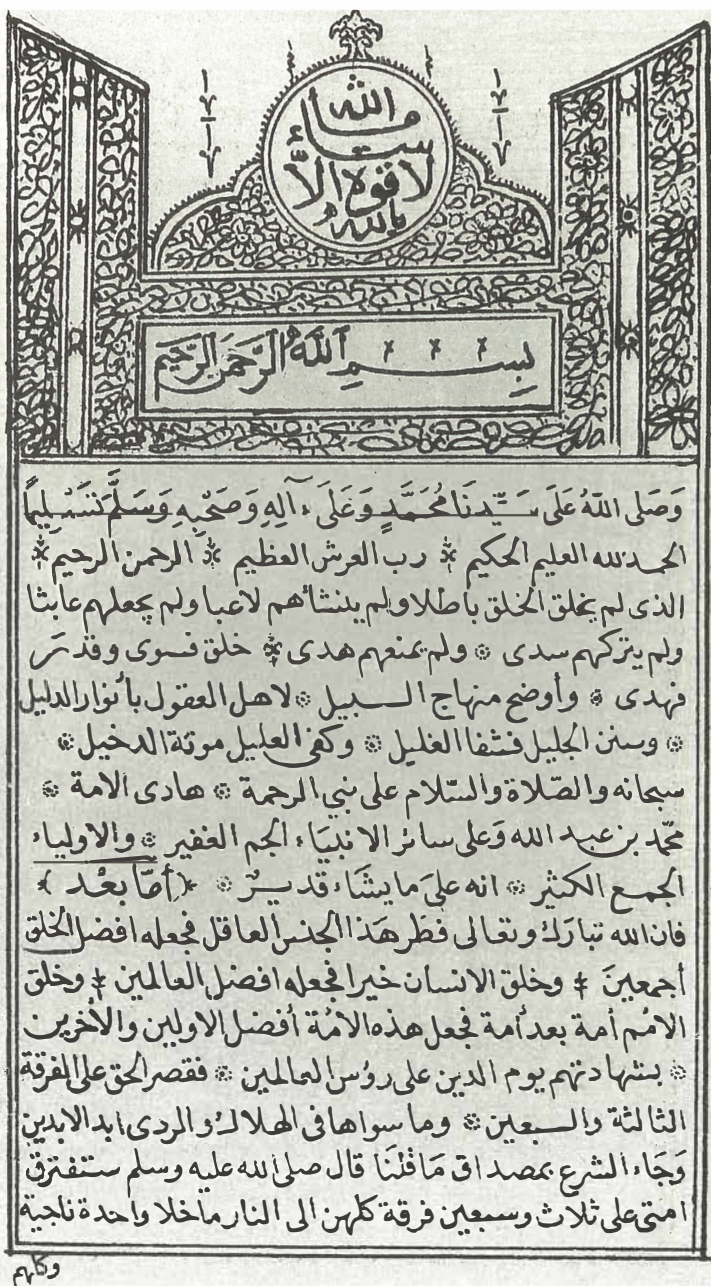 ما شاء الله
لا قوة إلا
بالله
بِسْمِ اللهِ الرَّحْمَنِ الرَّحِيمِ
وَصَلى اللهُ عَلَى سَيِّدِنَا مُحَمَّدٍ وَعَلَى ءَالِهِ وَصَحْبِهِ وَسَلَّمَ تَسْلِيمًا
الحمد لله العليم الحكيم * رب العرش العظيم * الرحمن الرحيم *
الذى لم يخلق الخلق باطلا ولم ينشأهم لاعبا ولم يجعلهم عابثا
ولم يتركهم سدى * ولم يمنعهم هدى * خلق فسوى وقدر
فهدى * وأوضح منهاج السبيل * لاهل العقول بأنوار الدليل
* وسنن الجليل فشفا الغليل * وكفى العليل موتة الدخيل *
سبحانه والصّلاة والسّلام على نبي الرحمة * هادى الامة *
محمّد بن عبد الله وَعلى سائر الانبيَاء الجم الغفير * والاولياء
الجمع الكثير * انه علىَ ما يشَاء قديرٌ * ﴿أمّا بعْد﴾
فان الله تبارَك وتعالى فطَر هَذا الجنس العاقل فجعله افضل الخلق
أجمعينَ * وخلق الانسان خيرا فجعله افضل العالمين * وخلق
الامُم أمة بعد أمة فجعل هذه الامُة أفضل الاولين والأخرين
* بشهادتهم يوم الدين على رؤس العالمين * فقصر الحق على الفرقة
الثالثة والسبعين * وما سواها فى الهلاك والردى ابد الابدين
وَجَاء الشرع بمصداق مَا قلْنَا قال صلى الله عليه وسلم ستفترق
امتى على ثلاث وسبعين فرقة كلهن الى النار ما خلا واحدة ناجية
وكلهم